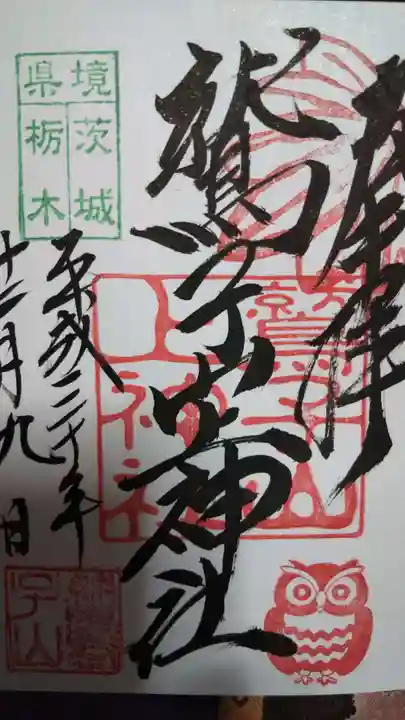 奉拝
鷲子山上神社
平成三十年
十二月九日
県境
栃木
茨城
鷲子山上神社
鷲子山